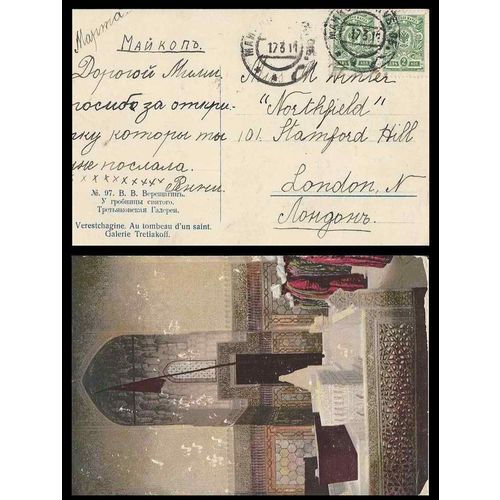 Марта
Майкопъ.
Дорогой Мили
посибо за откри-
тку которы ты
мне послала.
x x x x x x x x x x
№. 97. В. В. Верещагинъ.
У гробницы святого.
Третьяковская Галерея.
Verestchagine. Au tombeau d'un saint.
Galerie Tretiakoff.
17 3 11
2 2
M Winter
"Northfield"
101. Stamford Hill
London, N
Лондонъ.